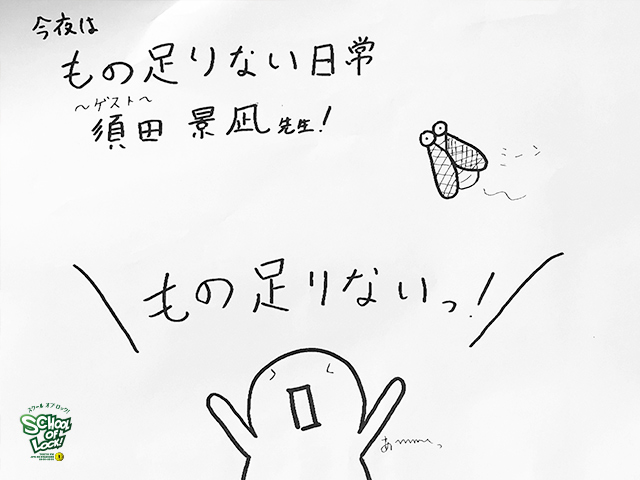 今夜は
もの足りない日常
〜ゲスト〜
須田 景凪 先生!
ミーン
もの足りないっ!
あーーっ
スクール オブ ロック!
SCHOOL
OF
LOCK!